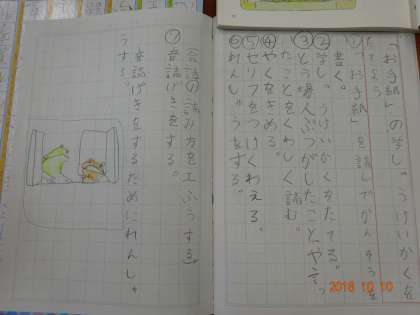 「お手紙」の学しゅうけいかくを
たてよう
①「お手紙」を読んでかんそうを
書く。
②学しゅうけいかくをたてる。
③とう場人ぶつがしたことや言っ
たことをくわしく読む。
④やくをきめる。
⑤セリフをつけくわえる。
⑥れんしゅうをする。
⑦音読げきをする。
会話の読み方を工ふうする。
音読げきをするためにれんしゅ
うする。
2018 10 10